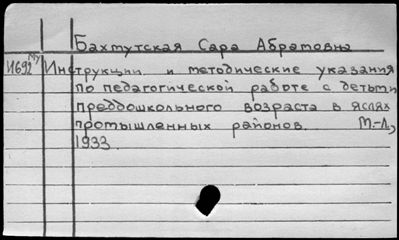 Бахмутская Сара Абрамовна
И692 Му Инструкции и методические указания
по педагогической работе с детьми
преддошкольного возраста в яслях
промышленных районов. М.-Л.,
1933.